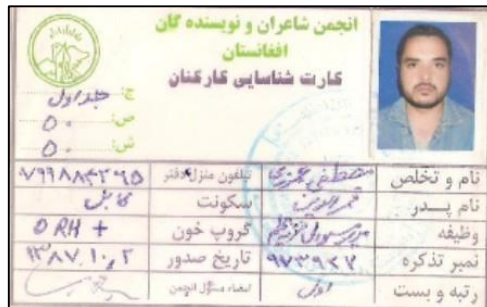 انجمن شاعران و نویسنده گان
افغانستان
کارت شناسایی کارکنان
ج: جلد اول
ص: ۵۰
ش: ۵۰
نام و تخلص مصطفی عمرزی تیلفون منزل دفتر
نام پدر سکونت کابل
وظیفه گروپ خون O RH +
نمبر تذکره تاریخ صدور ۱۳۸۷.۱۰.۲
رتبه و بست اول امضاء مسؤل انجمن